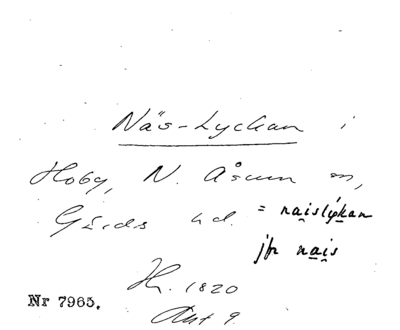 Näs-Lyckan i
Hoby, N. Åsum sn,
Gärds hd. = na̯islýkan
jfr na̯is
H. 1820
Akt 9.
Nr 7965.